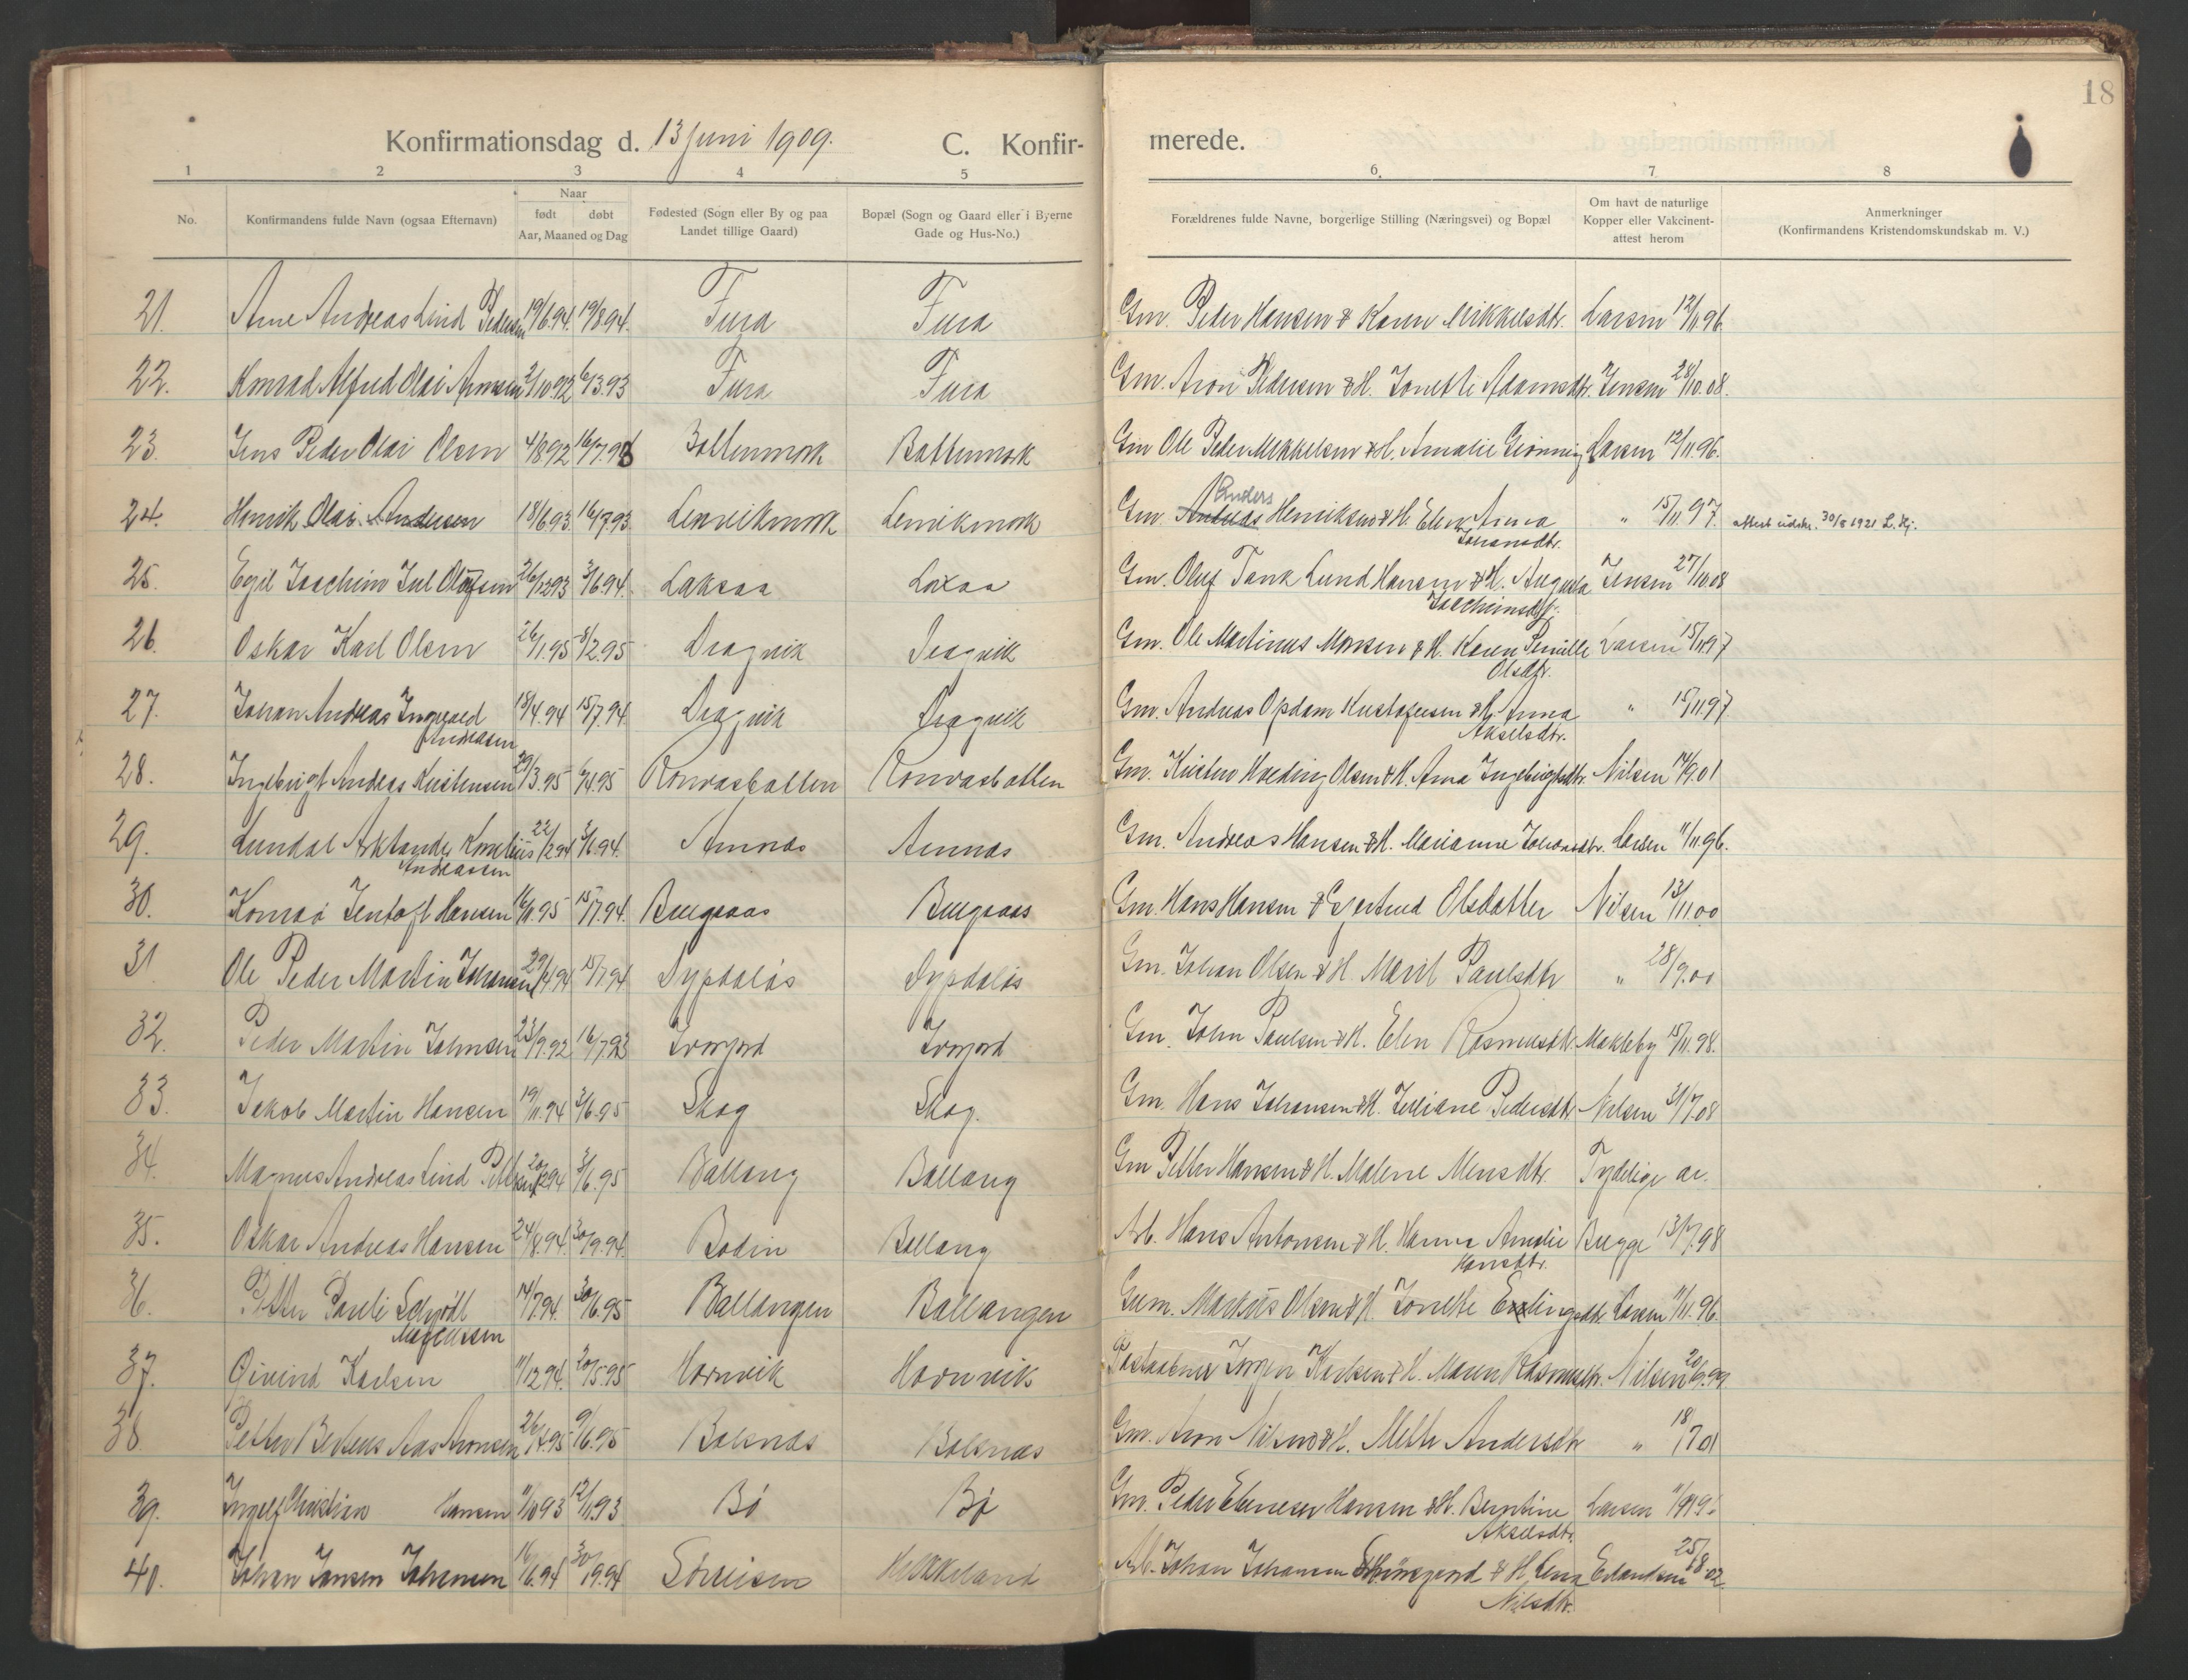 18
Konfirmationsdag d. 13 juni 1909. C. Konfir- merede.
1 2 3 4 5 6. 7 8
No. Konfirmandens fulde Navn (ogsaa Efternavn) Naar født døbt Aar, Maaned og Dag Fødested (Sogn eller By og paa Landet tillige Gaard) Bopæl (Sogn og Gaard eller i Byerne Gade og Hus-No.) Forældrenes fulde Navne, borgerlige Stilling (Næringsvei) og Bopæl Om havt de naturlige Kopper eller Vakcinent-attest herom Anmerkninger (Konfirmandens Kristendomskundskab m. V.)
21. Arne Andreas Lind Pedersen 19/6.94. 19/8.94. Fura Fura Gm. Peder Hansen & Karen Mikkelsdtr. Larsen 12/11.96.
22. Konrad Alfred Olai Aronsen 2/10.92 6/3.93 Fura Fura Gm. Aron Pedersen & H. Jonette Adamsdtr. Jensen 28/10.08.
23. Jens Peder Olai Olsen 4/8 92 16/7.93 Bottenmork Bottenmork Gm Ole Peder Mikkelsen & H. Amalie Grønning Larsen 12/11.96.
24. Henrik Olai Andersen 18/6 93. 16/7 93. Lenvikmork Lenvikmork Gm. Andreas Anders Henriksen & H. Elen Anna " 15/11.97. attest udskr. 30/8 1921 L. Hj.
Johansdtr.
25. Egil Joachim Jul Olufsen 26/12 93 3/6.94. Laksaa Laxaa Gm. Oluf Tank Lund Hansen & H. Augusta Jensen 27/10 08
Joachimsdtr.
26. Oskar Karl Olsen 26/1.95 8/2.95 Dragvik Dragvik Gm. Ole Martinus Monsen & H. Karen Pernille Larsen 15/11 97
Olsdtr.
27. Johan Andreas Ingvald 18/4.94 15/7.94 Dragvik Dragvik Gm. Andreas Opdam Kristofersen & H. Anna " 15/11 97.
Andreasen Akselsdtr.
28. Ingebrigt Andreas Kristensen 29/3.95 Gm. Kristen Hveding Olsen & H. Anna Ingebrigtsdtr. Nilsen 14/9.01
29. Lundal Arktander Kornelius 22/2 94 3/6.94. Arnnes Arnnes Gm. Andreas Hansen & H. Marianne Johansdtr. Larsen 11/11.96.
Andreassen
30. Konrad Jentoft Hansen 15/7.94. Gm. Hans Hansen & Gjertrud Olsdatter Nilsen 13/11.00
31 Ole Peder Martin Johansen 29/4 94 15/7.94 Dypdalås Dypdalås Gm. Johan Olsen & H. Marit Paulsdtr " 28/9.00
32. Peder Martin Johnsen 23/9.92 16/7.93 Gm. John Paulsen & H. Elen Rasmusdtr. Makleby 15/11.98.
33. Jakob Martin Hansen 19/11.94 3/6.95 Skog Skog. Gm. Hans Johansen & H. Juliane Pedersdtr. Nilsen 31/7.08
34. Magnus Andreas Lind Pettersen 20/12 94 3/6.95 Ballang Ballang Gm Petter Hansen & H. Malene Monsdtr. Tydelige ar.
35. Oskar Andreas Hansen 24/8.94. 30/9.94. Bodin Ballang Arb. Hans Antonsen & H. Hanna Amalie Bugge 13/7.98
Hansdtr.
36. Petter Pauli Schjødt 14/7.94. 30/6.95 Ballangen Ballangen Gaem. Markus Olsen & H. Jonette Erlingsdtr. Larsen 11/11.96.
Markussen
37. Øivind Karlsen 11/12 94. 20/5 95 Hornvik Hornvik Postaabner Jørgen Karlsen & H. Maren Rasmusdtr. Nilsen 20/9.99.
38 Petter Aronsen 26/4.95 9/6.95 Balsnes Balsnes Gm. Aron Nilsen & H. Mette Andersdtr " 18/7 01
39. Ingolf Christian Hansen 11/10 93 12/11.93. Bø Bø Gm. Peder Ebeneser Hansen & H. Berntine Larsen
Akselsdtr.
40. Johan Jansen Johansen 16/6.94 30/9.94 Sørreisen Hekkeland Arb. Johan Johansen & H. Lena Erlandsen 25/8 02.
Nilsdtr.